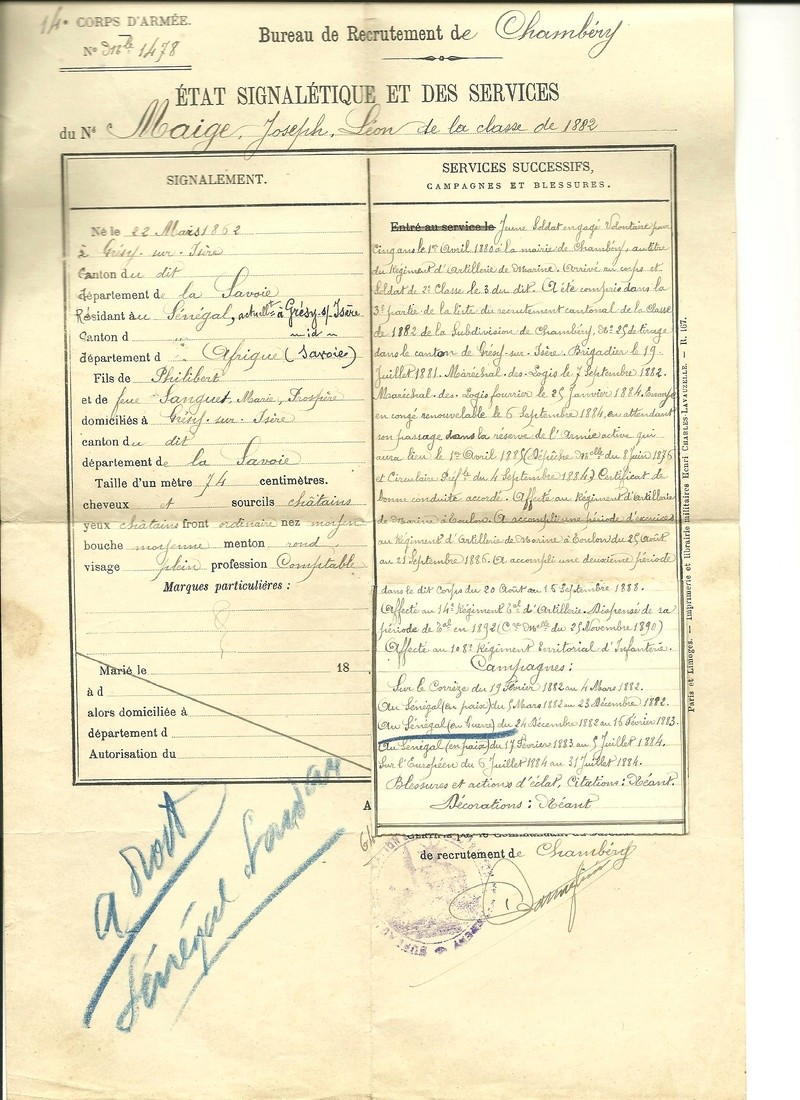 14e CORPS D'ARMÉE.
No Mle 1478
Bureau de Recrutement de Chambéry
ÉTAT SIGNALÉTIQUE ET DES SERVICES
du Né Maige, Joseph, Léon de la classe de 1882
SIGNALEMENT.
Né le 22 Mars 1862
à Grésy-sur-Isère
Canton du dit
département de la Savoie
Résidant au Sénégal, actuellt à Grésy s/ Isère
Canton d " - id -
département d " Afrique (Savoie)
Fils de Philibert
et de feue Sanguet Marie, Prospère
domiciliés à Grésy-sur-Isère
canton du dit
département de la Savoie
Taille d'un mètre 74 centimètres.
cheveux et sourcils châtains
yeux châtains front ordinaire nez moyen
bouche moyenne menton rond
visage plein profession Comptable
Marques particulières :
Marié le 18
à d
alors domiciliée à
département d
Autorisation du
SERVICES SUCCESSIFS,
CAMPAGNES ET BLESSURES.
Entré au service le Jeune Soldat engagé Volontaire pour
cinq ans le 1er Avril 1880 à la mairie de Chambéry, au titre
du Régiment d'Artillerie de Marine. Arrivé au corps et
Soldat de 2e Classe le 3 du dit. A été compris dans la
3e partie de la liste du recrutement cantonal de la Classe
de 1882 de la Subdivision de Chambéry, No 25 de tirage
dans le canton de Grésy-sur-Isère. Brigadier le 19
Juillet 1881. Maréchal-des-Logis le 7 Septembre 1882.
Maréchal-des-Logis fourrier le 25 Janvier 1884. Envoyé
en congé renouvelable le 6 Septembre 1884, en attendant
son passage dans la réserve de l'Armée active qui
aura lieu le 1er Avril 1885 (Dépêche Mlle du 8 Juin 1876
et Circulaire Préfle du 4 Septembre 1884) Certificat de
bonne conduite accordé. Affecté au Régiment d'Artillerie
de Marine à Toulon. A accompli une période d'exercices
au Régiment d'Artillerie de Marine à Toulon du 25 Août
au 21 Septembre 1886. A accompli une deuxième période
dans le dit corps du 20 Août au 16 Septembre 1888.
Affecté au 14e Régiment Tal d'Artillerie. Dispensé de sa
période de Tal en 1892 (Cre Mlle du 25 Novembre 1890)
Affecté au 108e Régiment Territorial d'Infanterie.
Campagnes :
Sur le Corrèze du 19 Février 1882 au 4 Mars 1882.
Au Sénégal (en paix) du 5 Mars 1882 au 23 Décembre 1882.
Au Sénégal (en Guerre) du 24 Décembre 1882 au 16 Février 1883.
Au Sénégal (en paix) du 17 Février 1883 au 5 Juillet 1884.
Sur l'Européen du 6 Juillet 1884 au 31 Juillet 1884.
Blessures et actions d'éclat, Citations : Néant.
Décorations : Néant
Paris et Limoges. — Imprimerie et librairie militaires Henri CHARLES-LAVAUZELLE. — R. 167.
A
de recrutement de Chambéry
a droit
Sénégal Soudan